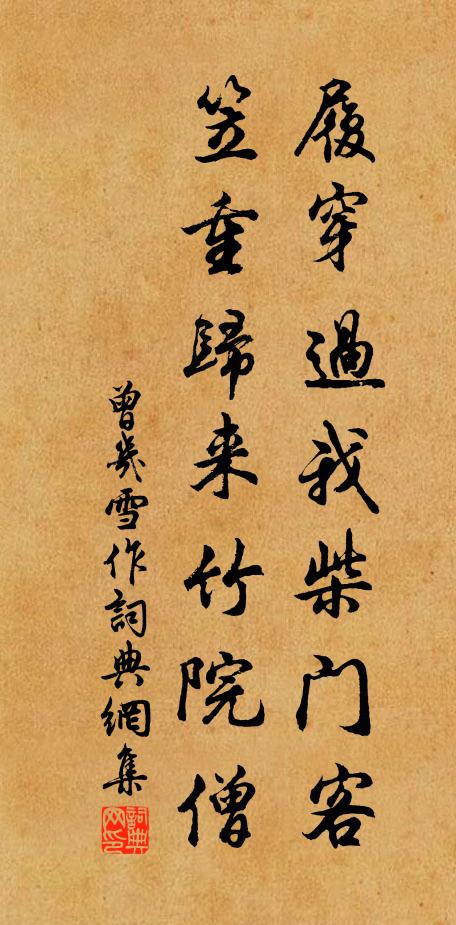 履穿過我柴門客
笠重歸来竹院僧
曾幾雪作詞典網集
詞典网印